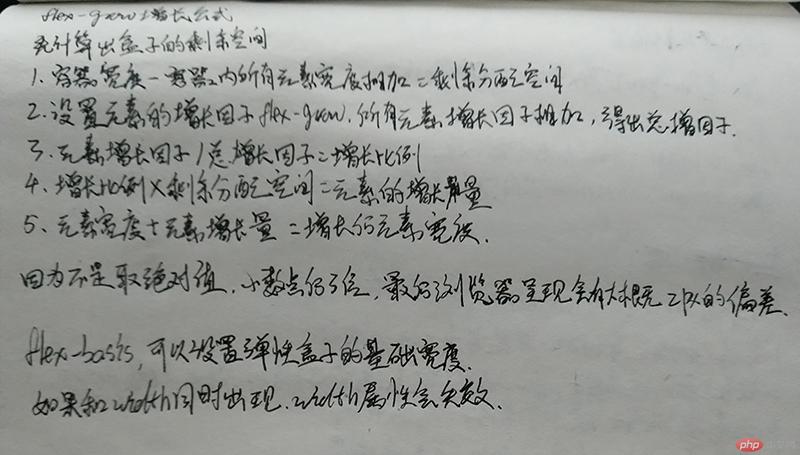 flex-grow增长公式
先计算出盒子的剩余空间
1. 容器宽度-容器内所有元素宽度相加=剩余分配空间
2. 设置元素的增长因子flex-grow,所有元素增长因子相加,得出总增因子.
3. 元素增长因子/总增长因子=增长比例
4. 增长比例×剩余分配空间=元素的增长量
5. 元素宽度+元素增长量=增长后元素宽度.
因为不是取绝对值,小数点后3位,最后浏览器呈现会有大概 的偏差.
flex-basis,可以设置弹性盒子的基础宽度.
如果和width同时出现.width属性会失效.
php